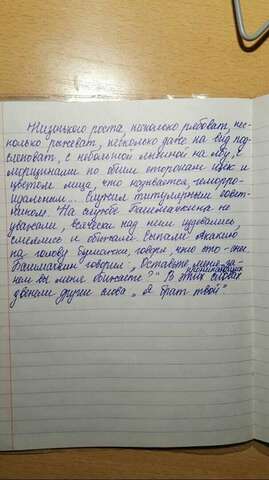 Низенького роста, несколько рябоват, нес-
колько рыжеват, несколько даже на вид под-
слеповат, с небольшой лысиной на лбу, с
морщинами по обеим сторонам щёк и
цветом лица, что называется, геморро-
идальным... Служил титулярным совет-
ником. На службе Башмачкина не
уважали, всячески над ним издевались,
смеялись и обижали. Сыпали Акакию
на голову бумажки, говоря, что это снег.
Башмачкин говорил: „Оставьте меня, за-
чем вы меня обижаете?" В этих проникающих словах
звенели другие слова „Я брат твой"